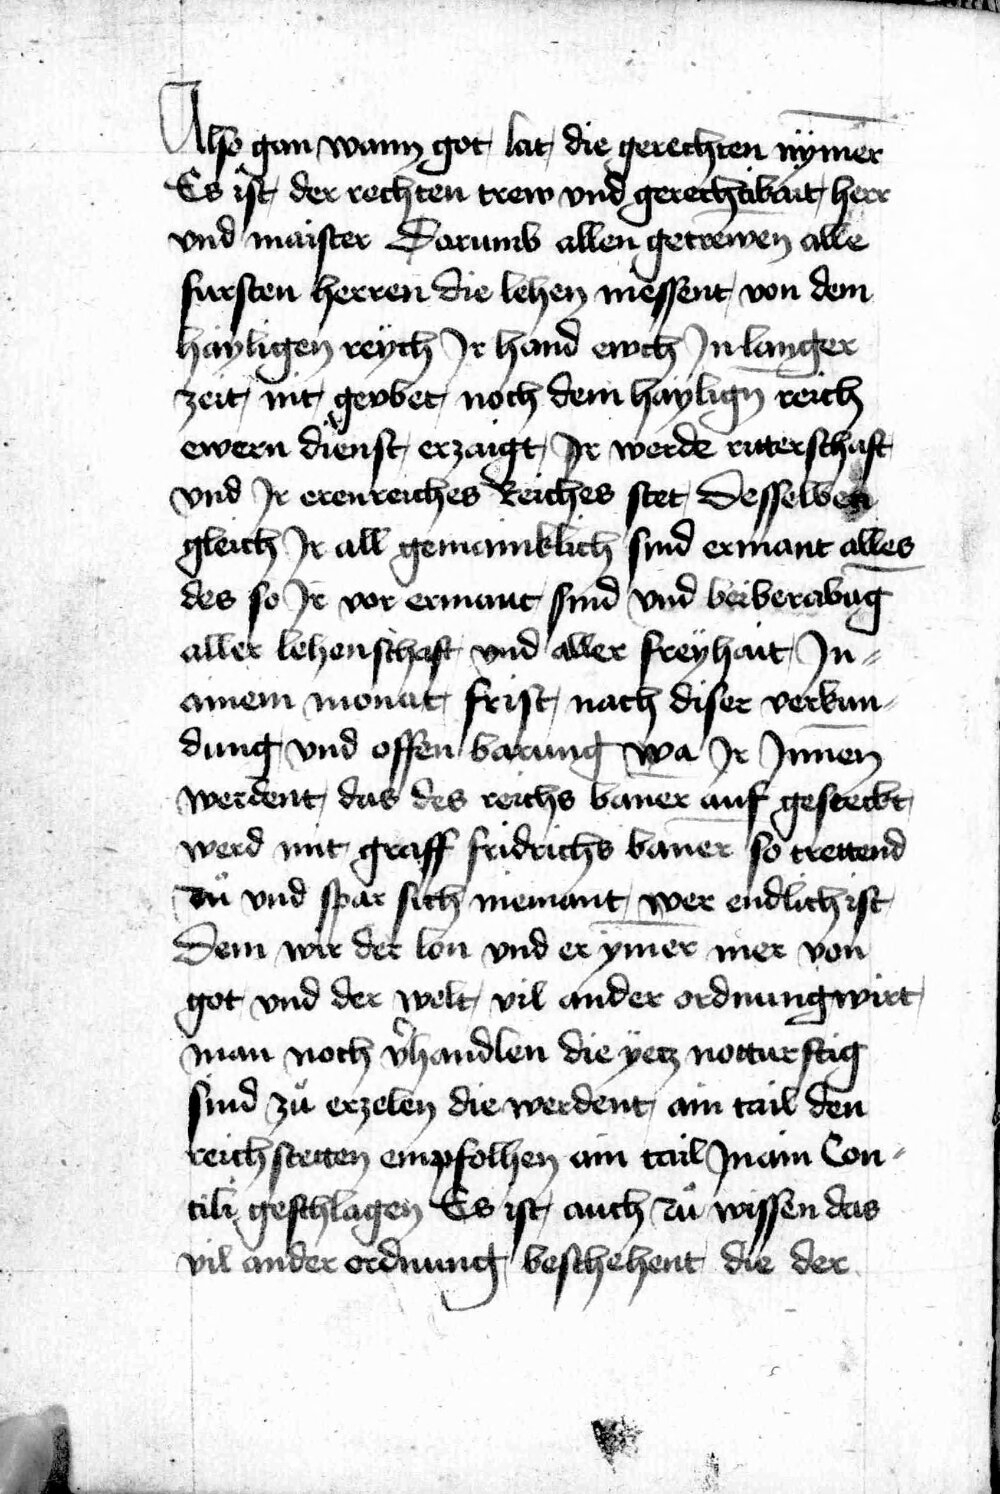 Also gan wann got lat die gerechten nÿmer
Es ist der rechten trew vnd gerechtikait herr
vnd maister Darumb allen getrewen alle
fursten herren die lehen niessent von dem
hayligen reÿch Jr hand ewch Jn langer
zeit nit gevbet noch dem hayligñ reich
ewern dienst erzaigt Jr werde ritterschaft
vnd Jr erenreiches Reiches stet Desselben
gleich Jr all gemainklich sind ermant alles
des so Jr vor ermant sind vnd bei berabung
aller lehenschaft vnd aller freÿhait Jn=
ainem monat frist nach diser verkun=
dung vnd offen barung wa Jr Jnnen
werdent das des reichs baner auf gesteckt
werd mit graff fridrichs baner so trettend
zů vnd spar sich niemant wer endlich ist
Dem wir der lon vnd er ymer mer von
got vnd der welt vil ander ordnung wirt
man noch v̉handlen die yetz notturftig
sind zů erzelen die werdent ain tail den
reichstetten empfolhen ain tail Jn ain Con=
cili geschlagen Es ist auch zů wissen das
vil ander ordnung beschehent die der